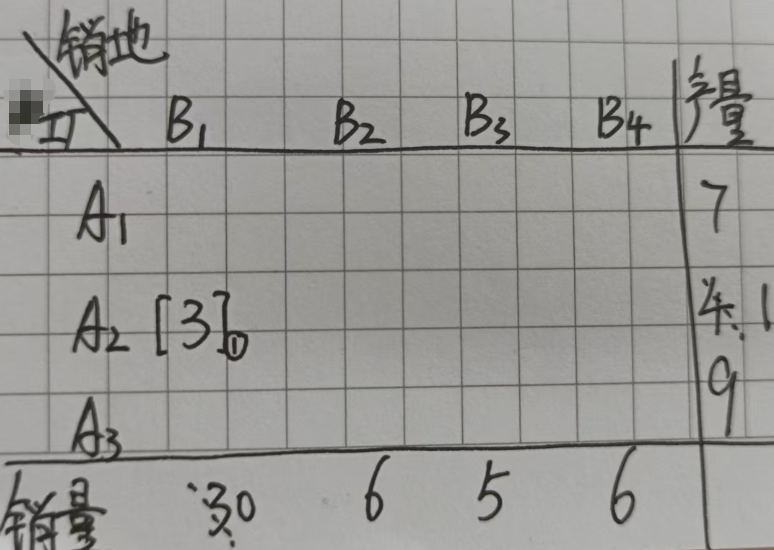 销地
工 B1 B2 B3 B4 产量
A1 7
A2 [3]① 4 1
A3 9
销量 3 0 6 5 6